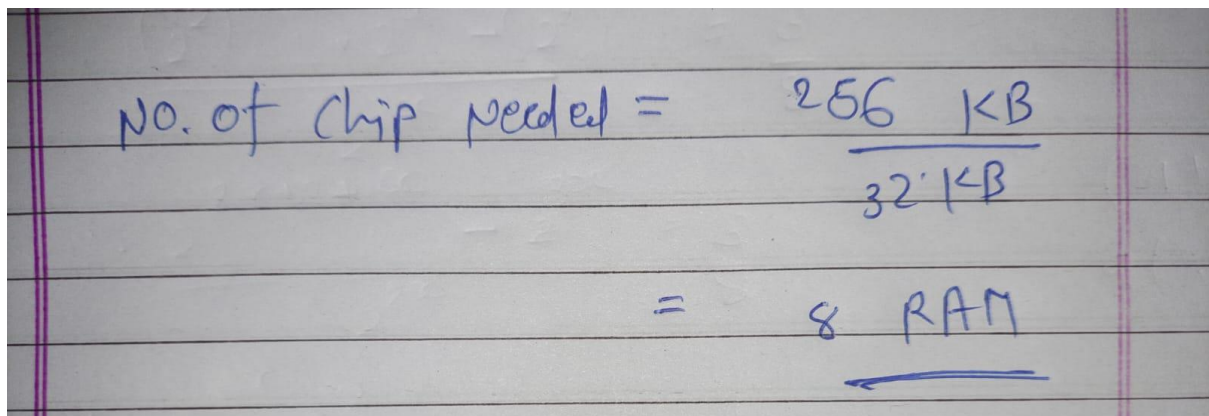 No. of Chip Needed = 256 KB
32 KB
= 8 RAM